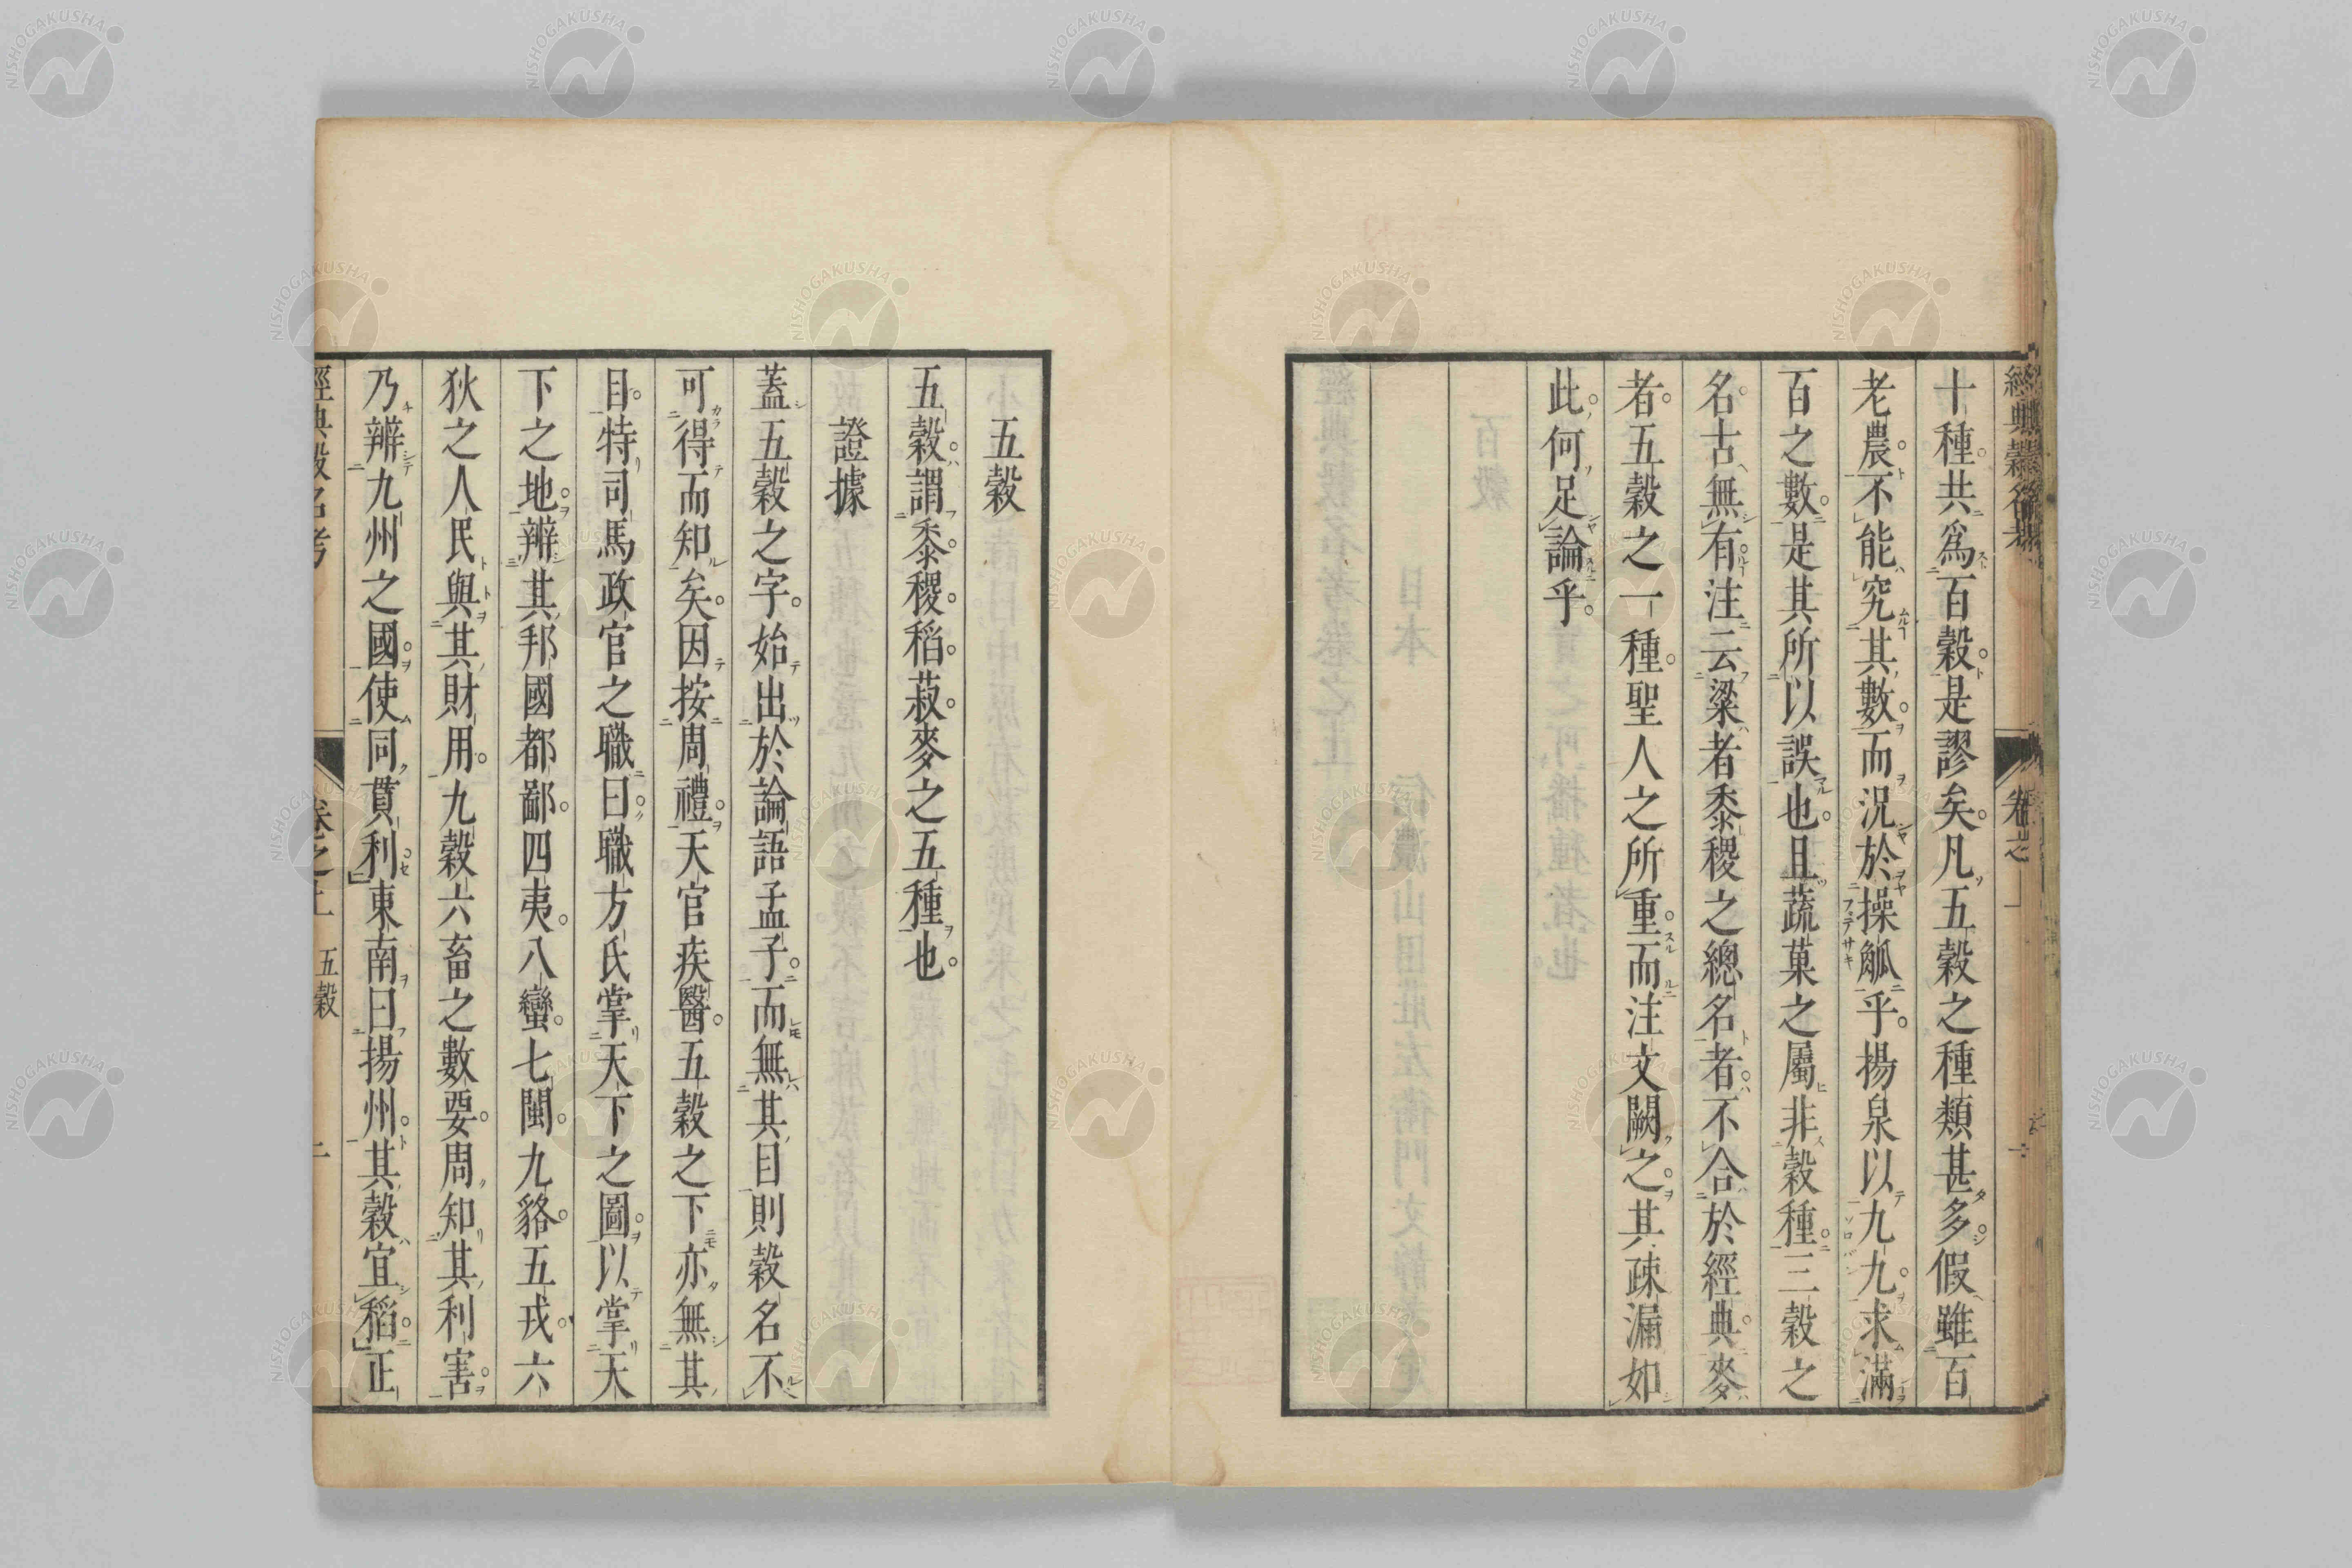 經典穀名考 卷之
十種共爲百穀是謬矣。凡五穀之種類甚多。假雖百
老農不能究其數。而況於操觚乎。揚泉以九九求滿
百之數。是其所以誤也。且蔬菓之屬非穀種。三穀之
名。古無有。注云粱者黍稷之總名者。不合於經典。麥
者。五穀之一種。聖人之所重。而注文闕之。其疎漏如
此。何足論乎。
五穀
五穀。謂黍。稷。稻。菽。麥之五種也。
證據
蓋五穀之字。始出於論語孟子。而無其目則穀名不
可得而知矣。因按周禮。天官疾醫。五穀之下亦無其
目。特司馬政官之職曰。職方氏掌天下之圖。以掌天
下之地。辨其邦國都鄙。四夷。八蠻。七閩。九貉。五戎。六
狄之人民與其財用。九穀六畜之數要。周知其利害。
乃辨九州之國。使同貫利。東南曰揚州。其穀宜稻。正
經典穀名考 卷之上 五穀 二
NISHOGAKUSHA